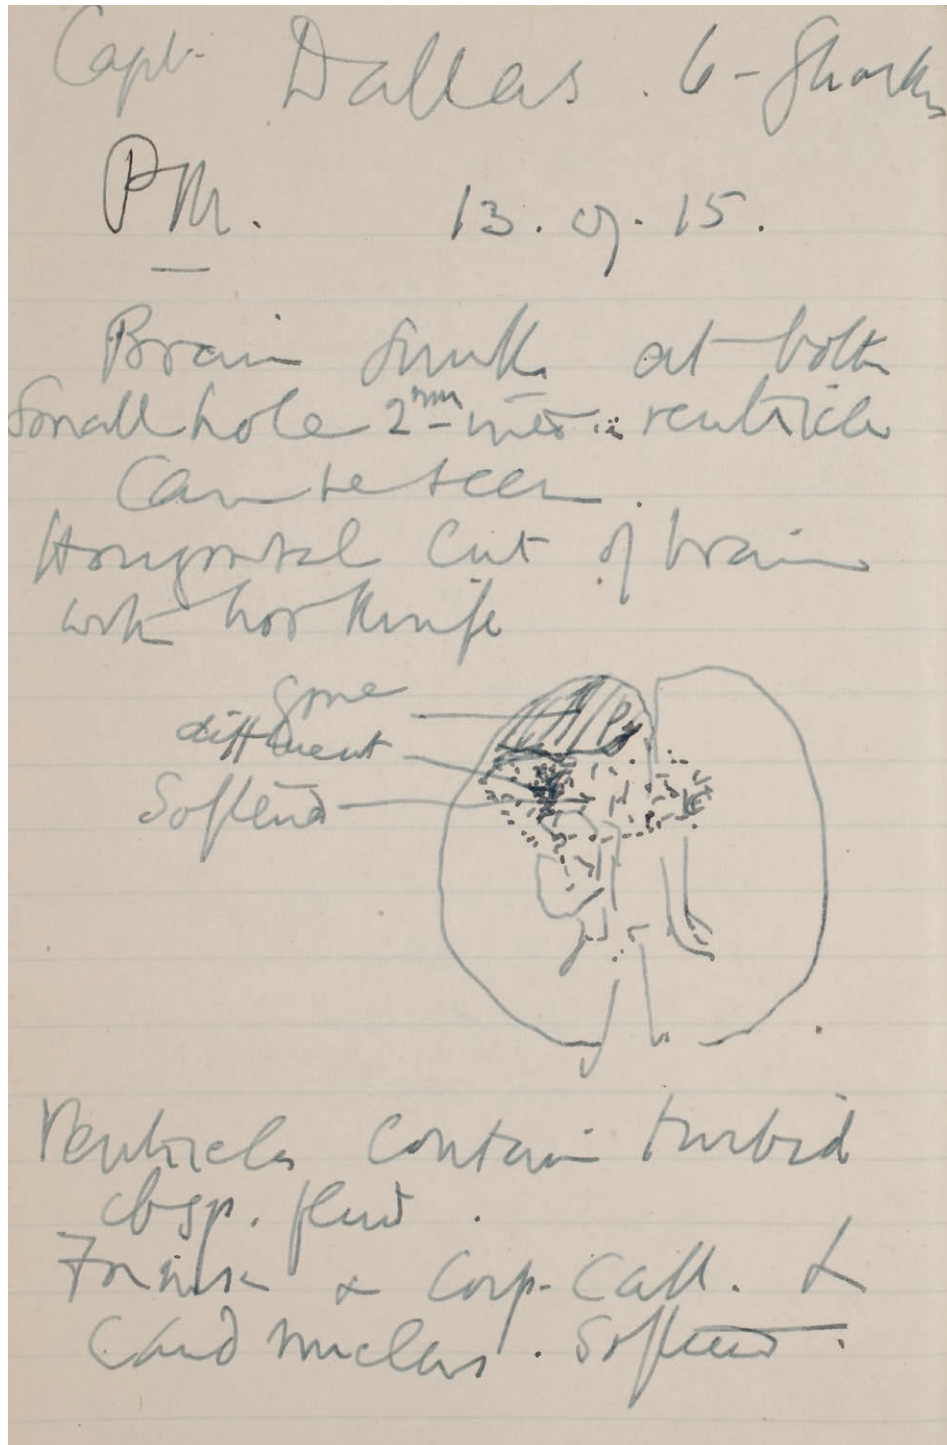 Capt. Dallas. 6-Ghurkas
PM. 13. 9. 15.
Brain at both
Small hole 2mm into ventricle
Can be seen.
Horizontal Cut of brain
with hot knife
gone
diffluent
Softend
Ventricles contain turbid
cbsp. fluid.
Fornix & Corp. Call. &
Caud nucleus. Softend.